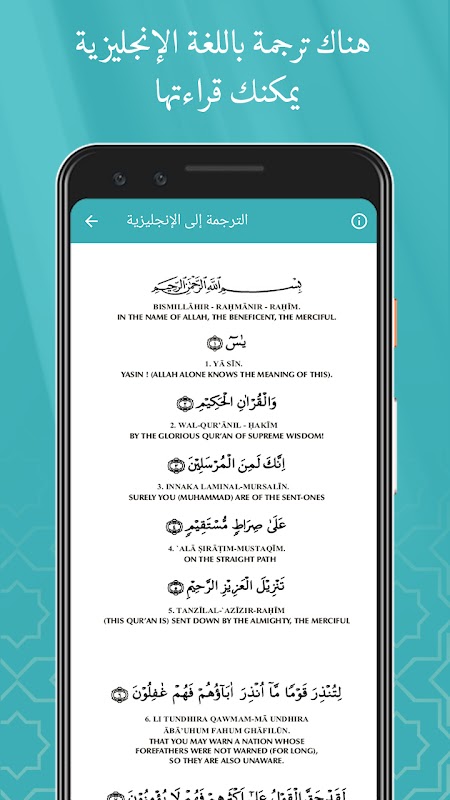 هناك ترجمة باللغة الإنجليزية
يمكنك قراءتها
الترجمة إلى الإنجليزية
بِسْمِ اللّٰهِ الرَّحْمٰنِ الرَّحِيْمِ
BISMILLĀHIR - RAḤMĀNIR - RAḤĪM.
IN THE NAME OF ALLAH, THE BENEFICENT, THE MERCIFUL.
يٰسٓ ۝١
1. YĀ SĪN.
YASIN ! (ALLAH ALONE KNOWS THE MEANING OF THIS).
وَالْقُرْاٰنِ الْحَكِيْمِ ۝٢
2. WAL-QUR'ĀNIL - ḤAKĪM
BY THE GLORIOUS QUR'AN OF SUPREME WISDOM!
اِنَّكَ لَمِنَ الْمُرْسَلِيْنَ ۝٣
3. INNAKA LAMINAL-MURSALĪN.
SURELY YOU (MUHAMMAD) ARE OF THE SENT-ONES
عَلٰى صِرَاطٍ مُّسْتَقِيْمٍ ۝٤
4. `ALĀ ṢIRĀṬIM-MUSTAQĪM.
ON THE STRAIGHT PATH
تَنْزِيْلَ الْعَزِيْزِ الرَّحِيْمِ ۝٥
5. TANZĪLAL-`AZĪZIR-RAḤĪM
(THIS QUR'AN IS) SENT DOWN BY THE ALMIGHTY, THE MERCIFUL
لِتُنْذِرَ قَوْمًا مَّآ اُنْذِرَ اٰبَآؤُهُمْ فَهُمْ غٰفِلُوْنَ ۝٦
6. LI TUNDHIRA QAWMAM-MĀ UNDHIRA
ĀBĀ'UHUM FAHUM GHĀFILŪN.
THAT YOU MAY WARN A NATION WHOSE
FOREFATHERS WERE NOT WARNED (FOR LONG),
SO THEY ARE ALSO UNAWARE.
لَقَدْ حَقَّ الْقَوْلُ عَلٰٓى اَكْثَرِهِمْ فَهُمْ لَا يُؤْمِنُوْنَ